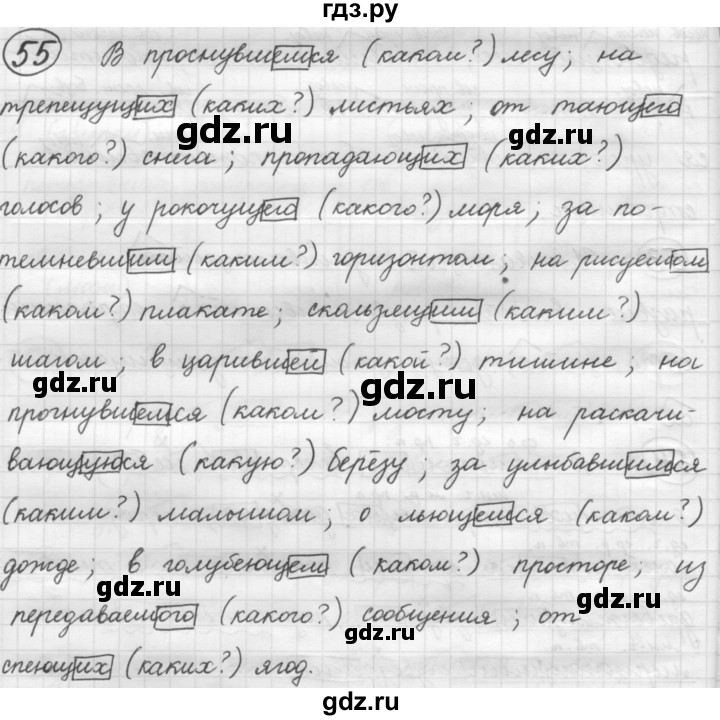 гдз.ру
55 В проснувшемся (каком?) лесу; на
трепещущих (каких?) листьях; от тающего
gdz.ru gdz.ru
(какого?) снега; пропадающих (каких?)
голосов; у рокочущего (какого?) моря; за по-
темневшим (каким?) горизонтом; на рисуемом
(каком?) плакате; скользящим (каким?)
шагом; в царившей (какой?) тишине; на
gdz.ru gdz.ru
прогнувшемся (каком?) мосту; на раскачи-
вающуюся (какую?) берёзу; за улыбавшимся
(каким?) малышом; о льющемся (каком?)
дожде; в голубеющем (каком?) просторе; из
gdz.ru gdz.ru
передаваемого (какого?) сообщения; от
gdz.ru
спеющих (каких?) ягод.
gdz.ru